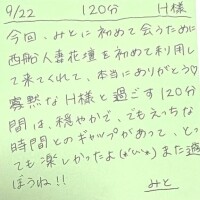 9/22 120分 H様
今回、みとに初めて会うために
西船人妻花壇を初めて利用し
て来てくれて、本当にありがとう♡
寡黙なH様と過ごす120分
間は、穏やかで、でもえっちな
時間とのギャップがあって、とっ
ても楽しかったよ(*´ω`*)また遊
ぼうね!!
みと